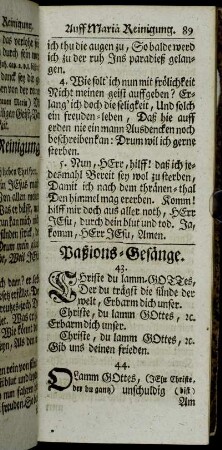 Auff Mariä Reinigung. 89
ich thu die augen zu, So balde werd
ich zu der ruh Ins paradieß gelan-
gen.
4. Wie solt ich nun mit frölichkeit
Nicht meinen geist auffgeben? Er-
lang' ich doch die seligkeit, Und solch
ein freuden-leben, Daß hie auff
erden nie ein mann Ausdencken noch
beschreiben kan: Drum wil ich gerne
sterben.
5. Nun, HErr, hilff! daß ich je-
desmahl Bereit sey wol zu sterben,
Damit ich nach dem thränen-thal
Den himmel mag ererben. Komm!
hilff mir doch aus aller noth, HErr
JEsu, durch dein blut und tod. Ja,
komm, HErr JEsu, Amen.
Paßions-Gesänge.
43.
Christe du lamm GOTTes,
Der du trägst die sünde der
welt, Erbarm dich unser.
Christe, du lamm GOttes, ꝛc.
Erbarm dich unser.
Christe, du lamm GOttes, ꝛc.
Gib uns deinen frieden.
44.
O Lamm GOttes, (JEsu Christe,
der du gantz) unschuldig (bist)
Am